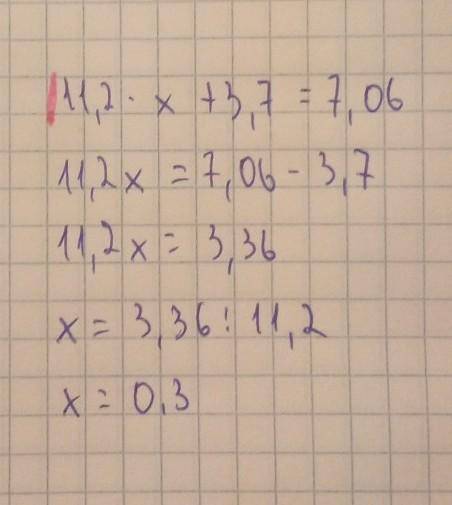 11,2 · x + 3,7 = 7,06
11,2x = 7,06 - 3,7
11,2x = 3,36
x = 3,36 : 11,2
x = 0,3